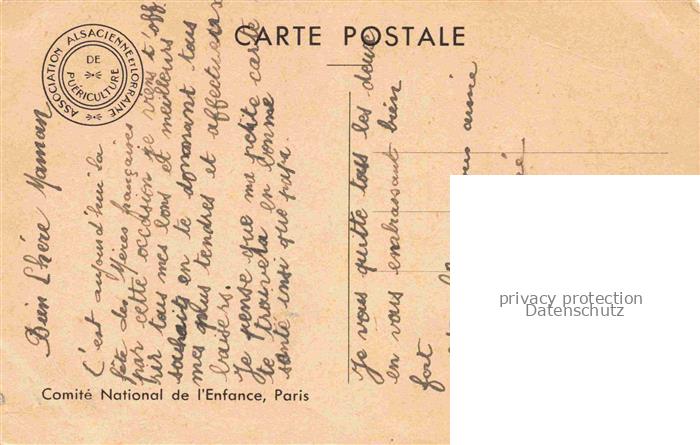 CARTE POSTALE
ASSOCIATION ALSACIENNE ET LORRAINE
DE
PUÉRICULTURE
Bien Chère Maman
C'est aujourd'hui la
fête des Mères françaises
par cette occasion je viens t'off
rir tous mes bons et meilleurs
souhaits en te donnant tous
mes plus tendres et affectueux
baisers.
Je pense que ma petite carte
te trouvera en bonne
santé insi que papa.
Je vous quitte tous les deux
en vous embrassant bien
fort
vous aime
Comité National de l'Enfance, Paris
privacy protection
Datenschutz